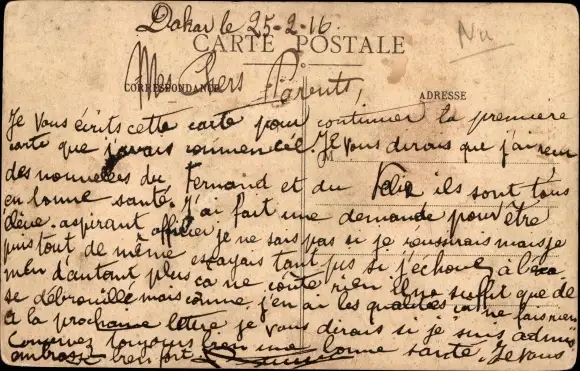 Dakar le 25-2-16.
Nu
CARTE POSTALE
CORRESPONDANCE
ADRESSE
Mes Chers Parents,
Je vous écrits cette carte pour continuer la première
carte que j'avais commencé. Je vous dirais que j'ai reçu
M
des nouvelles du Fernand et du Felix ils sont tous
en bonne santé. J'ai fait une demande pour être
élève-aspirant officier je ne sais pas si je réussirais mais je
puis tout de même essayais tant pis si j'échoue, à
men d'autant plus ça ne coûte rien il ne suffit que de
se débrouillé mais comme j'en ai les qualités ne fais rien
à la prochaine lettre, je vous dirais si je suis admis
Conservez toujours bien une bonne santé. Je vous
embrasse bien fort